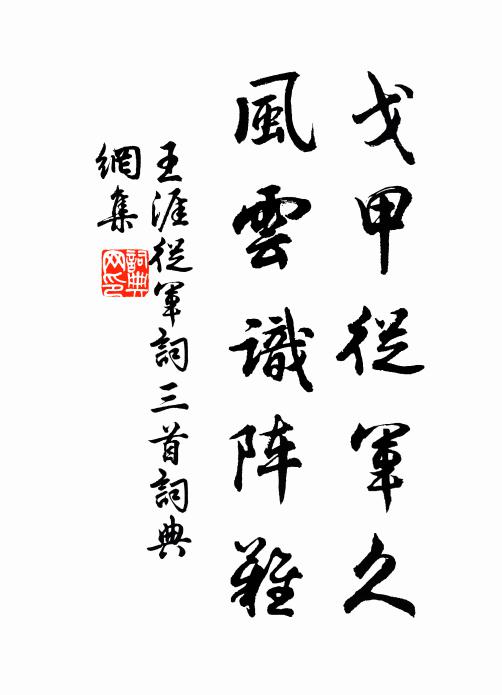 戈甲從軍久
風雲識陣難
王涯從軍詞三首詞典
網集
詞典
网印